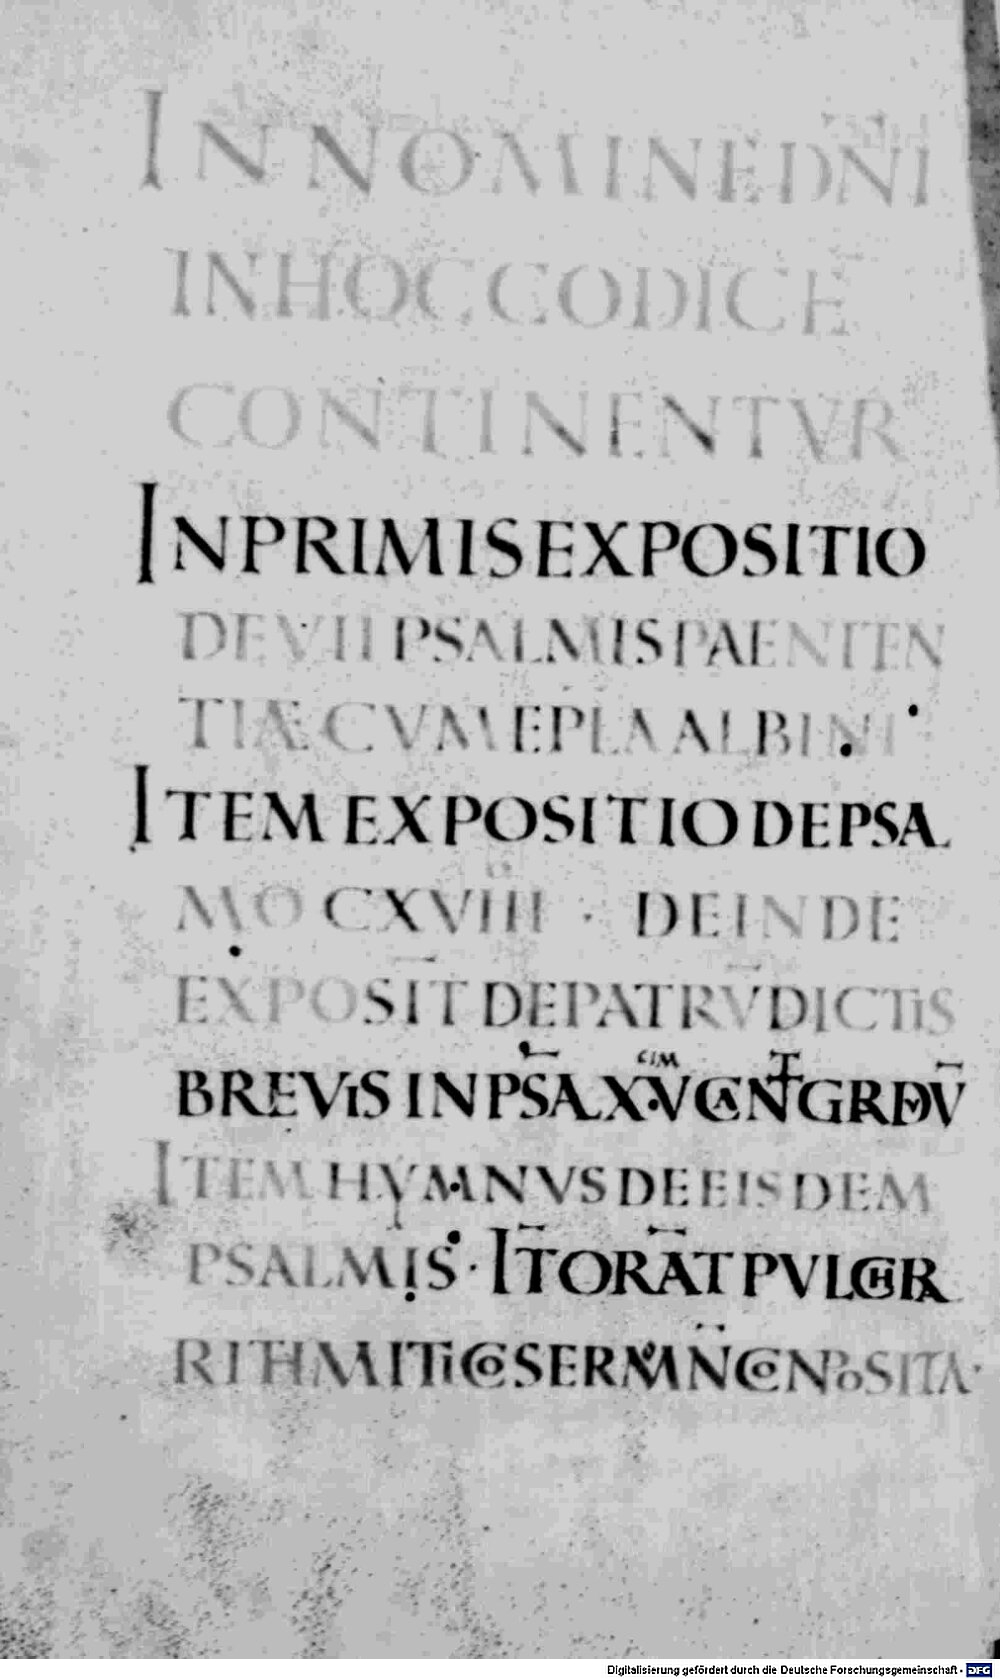 IN NOMINE DN̄I
IN HOC CODICE
CONTINENTVR
INPRIMIS EXPOSITIO
DE VII PSALMIS PAENITEN
TIÆ CVM EPLA ALBINI
ITEM EXPOSITIO DE PSA
MO CXVIII · DEINDE
EXPOSIT DE PATRV̄ DICTIS
BREVIS IN PSA XV CANT GRDV̄
ITEM HYMNVS DE EISDEM
PSALMIS · IT̄ ORAT̄ PVLCHRA
RITHMITICO SERMŌN CONPOSITA ·
Digitalisierung gefördert durch die Deutsche Forschungsgemeinschaft - DFG